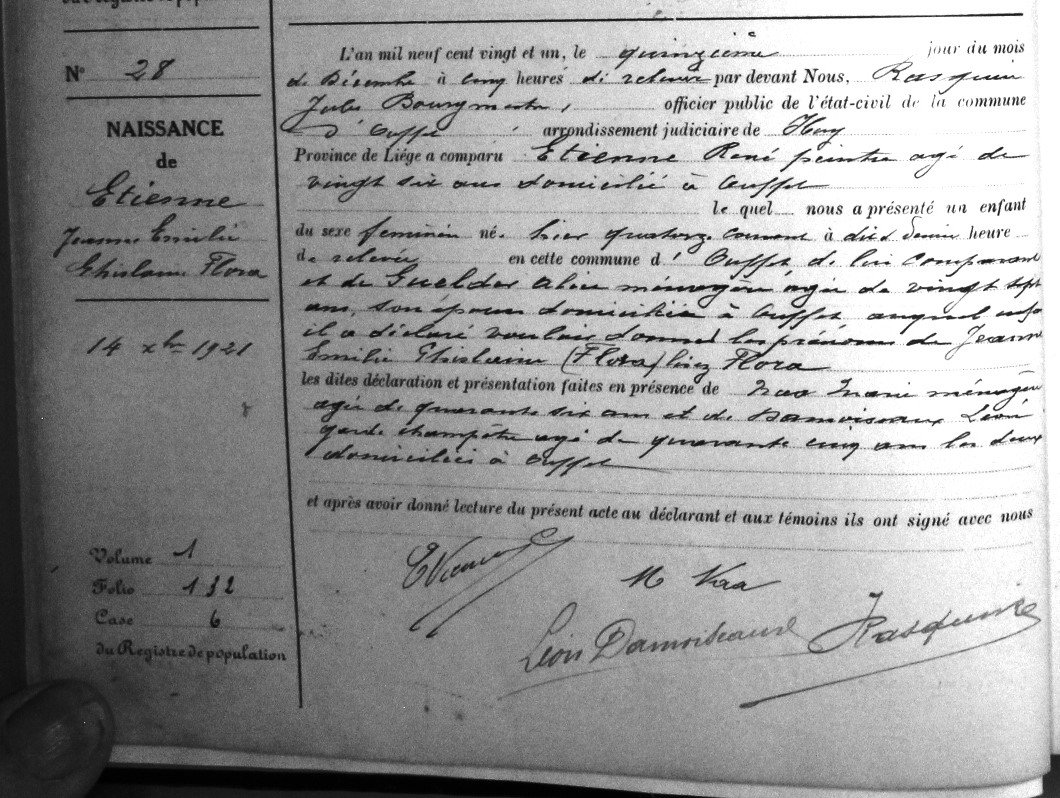 N° 28
NAISSANCE
de
Etienne
Jeanne Emilie
Ghislaine Flora
14 xbre 1921
Volume 1
Folio 132
Case 6
du Registre de population
L'an mil neuf cent vingt et un, le quinzième jour du mois
de Décembre à cinq heures de relevée par devant Nous, Rasquin
Jules Bourgmestre, officier public de l'état-civil de la commune
d'Ouffet arrondissement judiciaire de Huy
Province de Liége a comparu Etienne René peintre agé de
vingt six ans domicilié à Ouffet
le quel nous a présenté un enfant
du sexe féminin né. hier quatorze courant à dix demie heure
de relevée en cette commune d'Ouffet de lui comparant
et de Guelder Alice ménagère agée de vingt sept
ans, son épouse domiciliée à Ouffet auquel enfant
il a déclaré vouloir donner les prénoms de Jeanne
Emilie Ghislaine (Flora) lisez Flora
les dites déclaration et présentation faites en présence de Marie ménagère
agée de quarante six ans et de Damoiseaux Léon
garde champêtre agé de quarante cinq ans les deux
domiciliés à Ouffet
et après avoir donné lecture du présent acte au déclarant et aux témoins ils ont signé avec nous
Léon Damoiseaux JRasquin